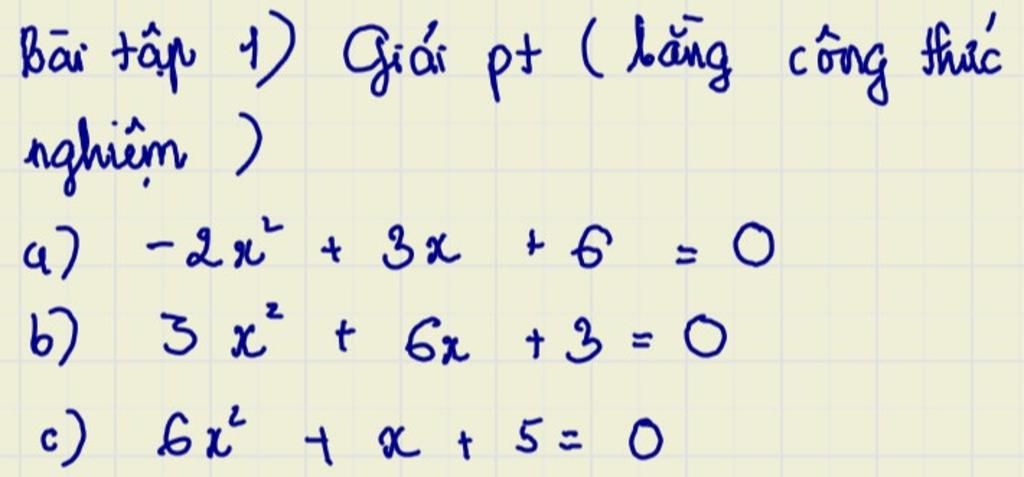 Bài tập 1) Giải pt (bằng công thức
nghiệm )
a) -2x² + 3x + 6 = 0
b) 3x² + 6x + 3 = 0
c) 6x² + x + 5 = 0